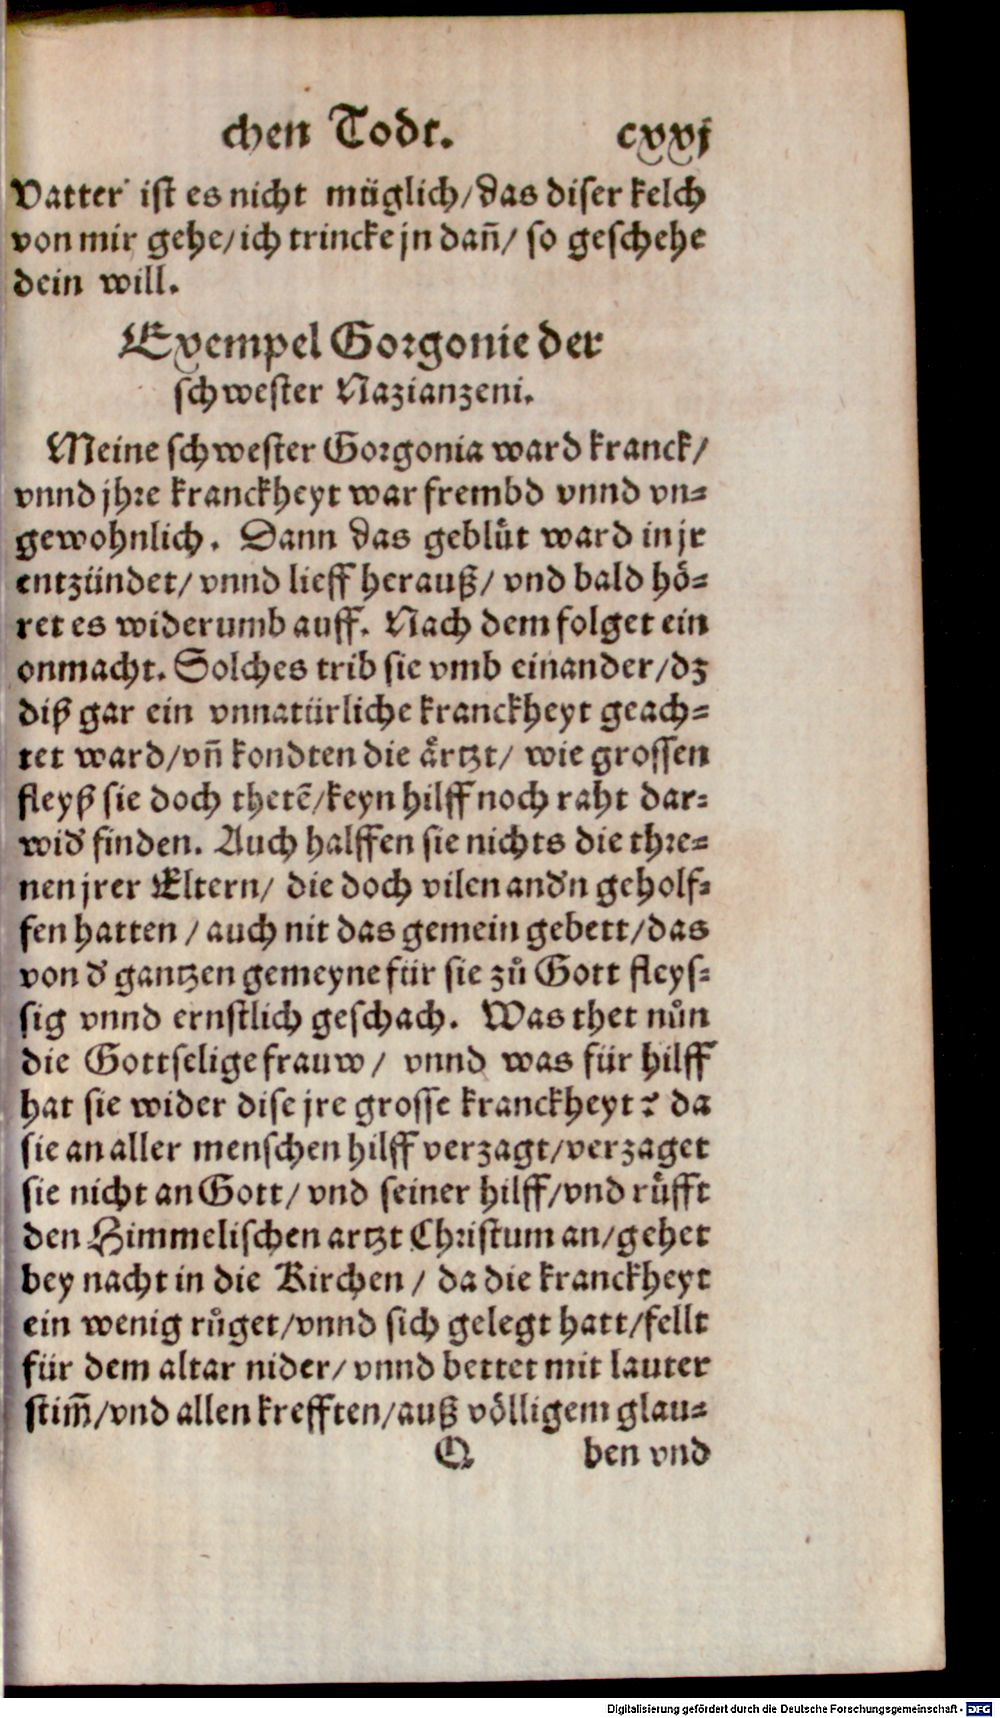 chen Todt. cxxj
Vatter ist es nicht müglich/das diser kelch
von mir gehe/ich trincke jn dañ/ so geschehe
dein will.
Exempel Gorgonie der
schwester Nazianzeni.
Meine schwester Gorgonia ward kranck/
vnnd jhre kranckheyt war frembd vnnd vn=
gewohnlich. Dann das geblůt ward in jr
entzündet/ vnnd lieff herauß/ vnd bald hö=
ret es widerumb auff. Nach dem folget ein
onmacht. Solches trib sie vmb einander/dz
diß gar ein vnnatürliche kranckheyt geach=
tet ward/vñ kondten die ärtzt/ wie grossen
fleyß sie doch thetẽ/keyn hilff noch raht dar=
wid' finden. Auch halffen sie nichts die thre=
nen jrer Eltern/ die doch vilen and'n geholf=
fen hatten / auch nit das gemein gebett/das
von d' gantzen gemeyne für sie zů Gott fleys=
sig vnnd ernstlich geschach. Was thet nůn
die Gottselige frauw/ vnnd was für hilff
hat sie wider dise jre grosse kranckheyt? da
sie an aller menschen hilff verzagt/verzaget
sie nicht an Gott/ vnd seiner hilff/vnd růfft
den Himmelischen artzt Christum an/gehet
bey nacht in die Kirchen / da die kranckheyt
ein wenig růget/vnnd sich gelegt hatt/fellt
für dem altar nider/ vnnd bettet mit lauter
stim̃/vnd allen krefften/auß völligem glau=
Q ben vnd
Digitalisierung gefördert durch die Deutsche Forschungsgemeinschaft - DFG